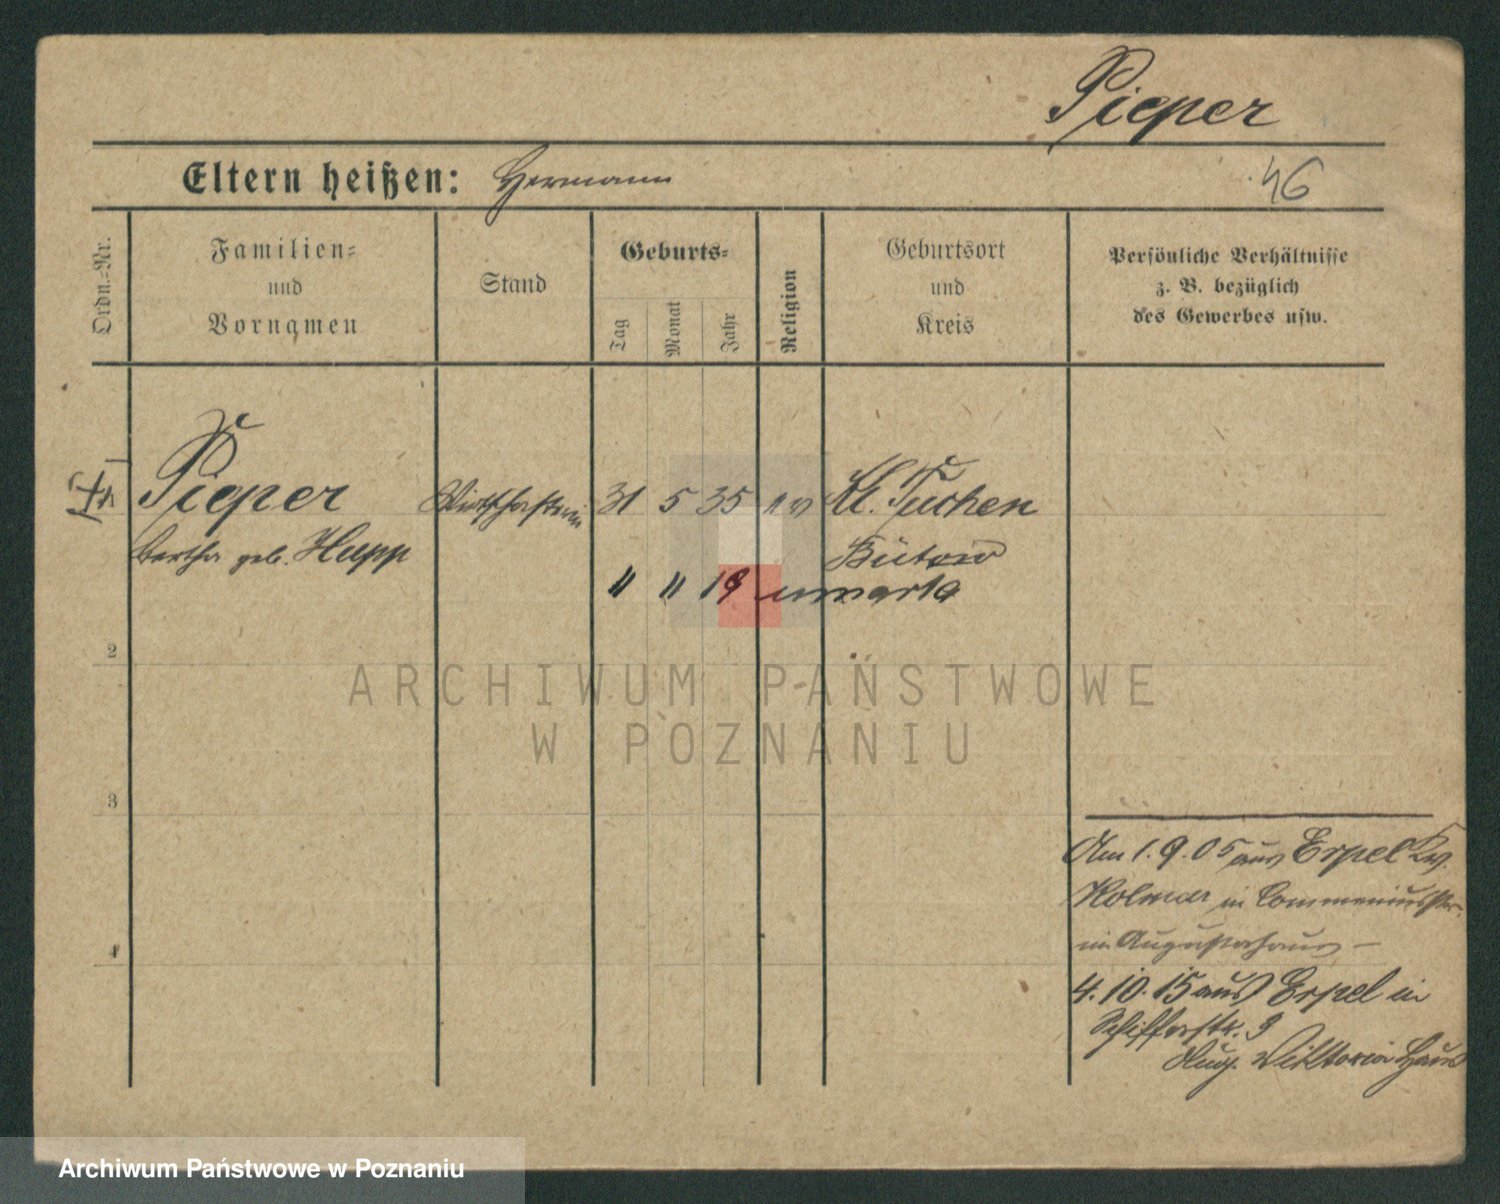 Pieper
Eltern heißen: Hermann
46
Ordn.-Nr.
Familien-
und
Vornamen
Stand
Geburts-
Tag
Monat
Jahr
Religion
Geburtsort
und
Kreis
Persönliche Verhältnisse
z. B. bezüglich
des Gewerbes usw.
Pieper
Bertha geb. Hupp
31 5 35 ev Kl. Tuchen
Bütow
" " 19
2
3
4
Am 1.9.05 aus Erpel Kr.
Kolmar in Commeniusstr.
im Augustahaus –
4.10.15 aus Erpel in
Schifferstr. 9
Aug. Viktoria Haus
ARCHIWUM PAŃSTWOWE
W POZNANIU
Archiwum Państwowe w Poznaniu